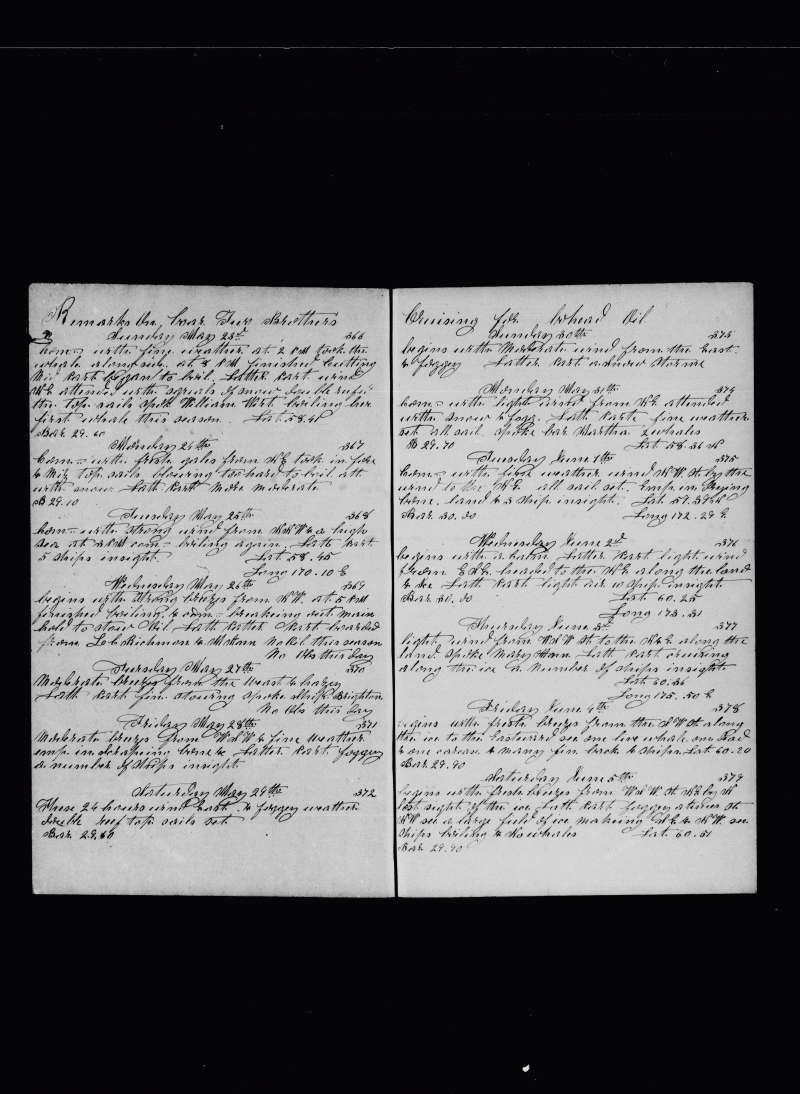 Remarks On board Bar Two Brothers
Sunday May 23d 366
Com= with fine weather at 2 PM took the
whale along side at 8 PM finished cutting
Mid Part began to boil. Latter Part wind
NE attended with squals of snow double reefed
the top sails spoke William Hart boiling her
first whale this season. Lat 58.41
Bar 29.60
Monday 24th 367
Com= with fresh gales from NE took in fore
& Miz top sails blowing too hard to boil att
with snow Lath Part more moderate
B 29.10
Tuesday May 25th 368
Com= with strong wind from NNW & a high
sea at 3 PM com= boiling again. Lath Part
5 ships insight. Lat 58.45
Long 170.10 E
Wednesday May 26th 369
begins with strong breeze from NW. at 5 PM
finished boiling, & com= breakeing out main
hold to stow Oil Lath Latter Part boarded
from Seb Richmon & No Oil this season
No Obs this day
Thursday May 27th 370
Moderate breeze from the Weast & hazey
Lath Part fin. stowing spoke Ship Brighton
No Obs this day
Friday May 28th 371
Moderate breeze from WSW & fine weather
emp. in scrapeing bone & Latter Part foggey
a number of ships insight
Saturday May 29th 372
These 24 hours wind East & foggey weather
double reef top sails set
Bar 29.60
Cruising for bohead Oil
Sunday 30th 373
begins with Moderate wind from the East
& foggey Latter Part a snow storme
Monday May 31th 374
Com= with light wind from NE attended
with snow & fog. Lath Part fine weather
set all sail. spoke bar Martha 2 whales
B 29.70 Lat 58.36 N
Tuesday June 1th 375
Com= with fine weather wind NW St by the
wind to the NE all sail set. Emp in drying
bone. land & 3 ship insight. Lat 59.39 N
Bar 30.30 Long 172.29 E
Wednesday June 2d 376
begins with a calm Latter Part light wind
from ESE. headed to the NE along the land
& ice Lath Part light air 10 ship insight
Bar 30.30 Lat 60.25
Long 173.31
Thursday June 3d 377
light wind from WSW St to the N&E along the
land. spoke Mary Ann. Lath Part cruising
along the ice a number of ships insight
Lat 60.36
Long 175.50 E
Friday June 4th 378
begins with fresh breeze from the SW St along
the ice to the Eastward see one live whale one Dead
& one carcase & many fin back & ships. Lat 60.20
Bar 29.90
Saturday June 5th 379
begins with fresh breeze from WSW St NE by N
lost sight of the ice. Lath Part foggey at 10 St
NW see a large field of ice makeing SE & NW. see
ships boiling & No whales Lat 60.31
Bar 29.90